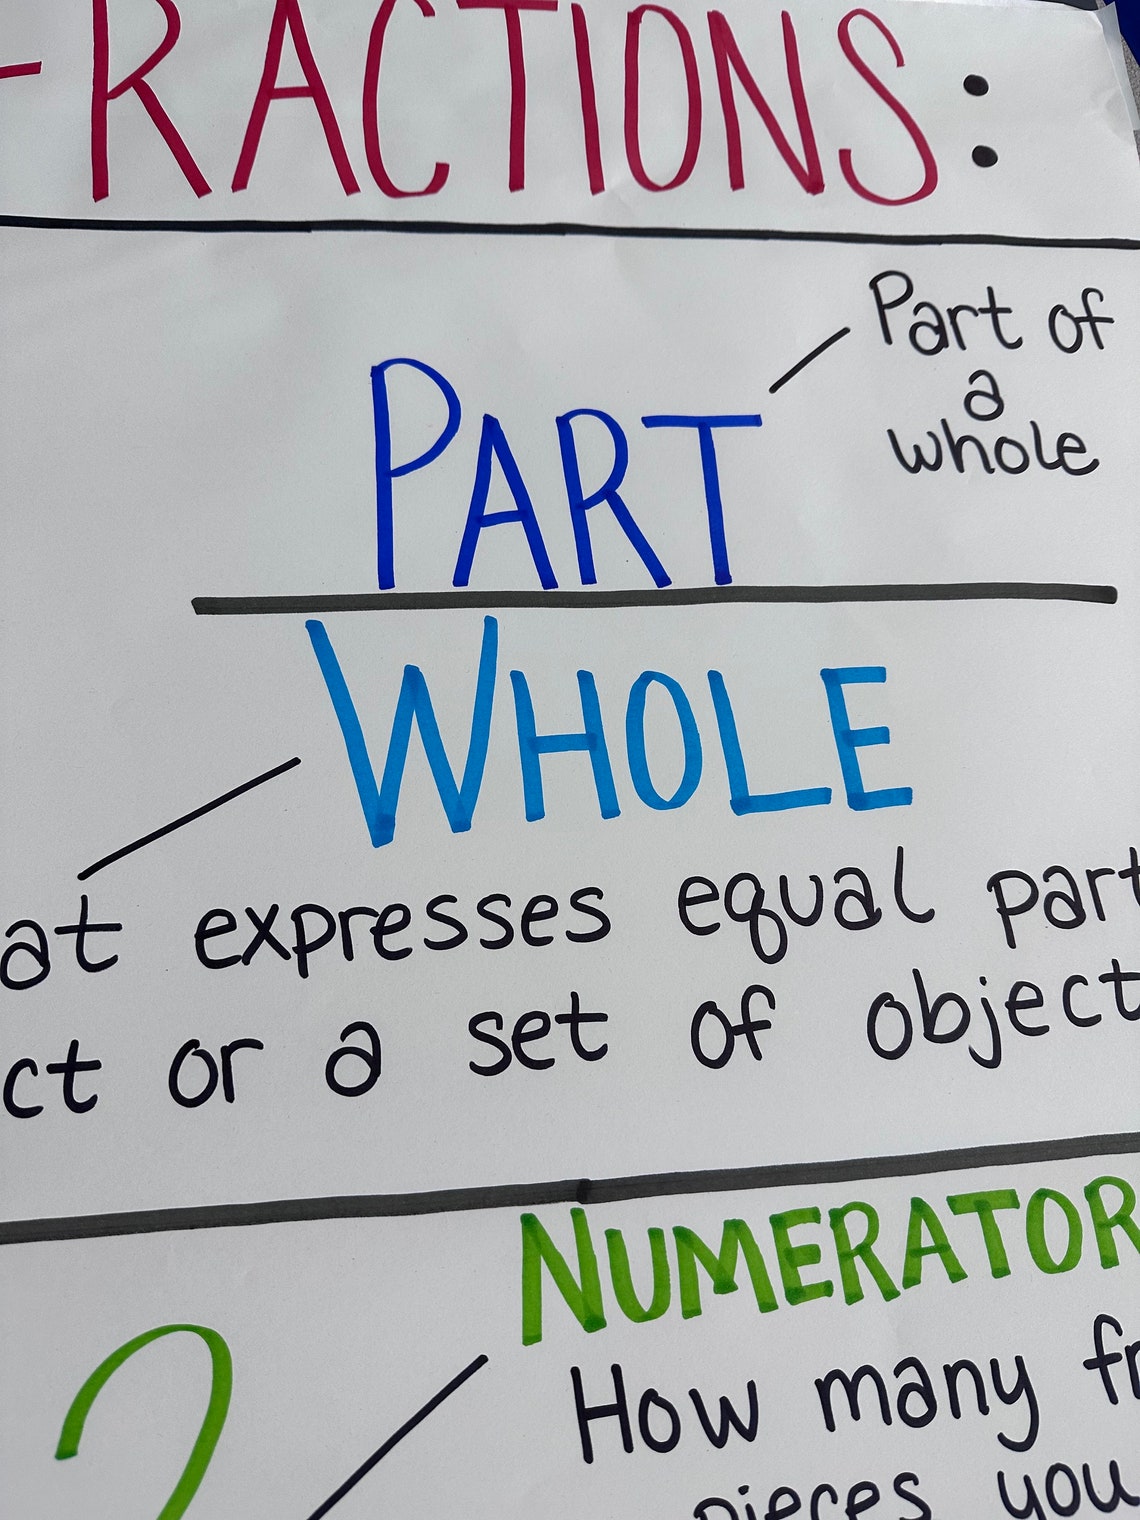 FRACTIONS:
Part of
a
whole
PART
WHOLE
at expresses equal part
ct or a set of object
NUMERATOR
2
How many fr
pieces you